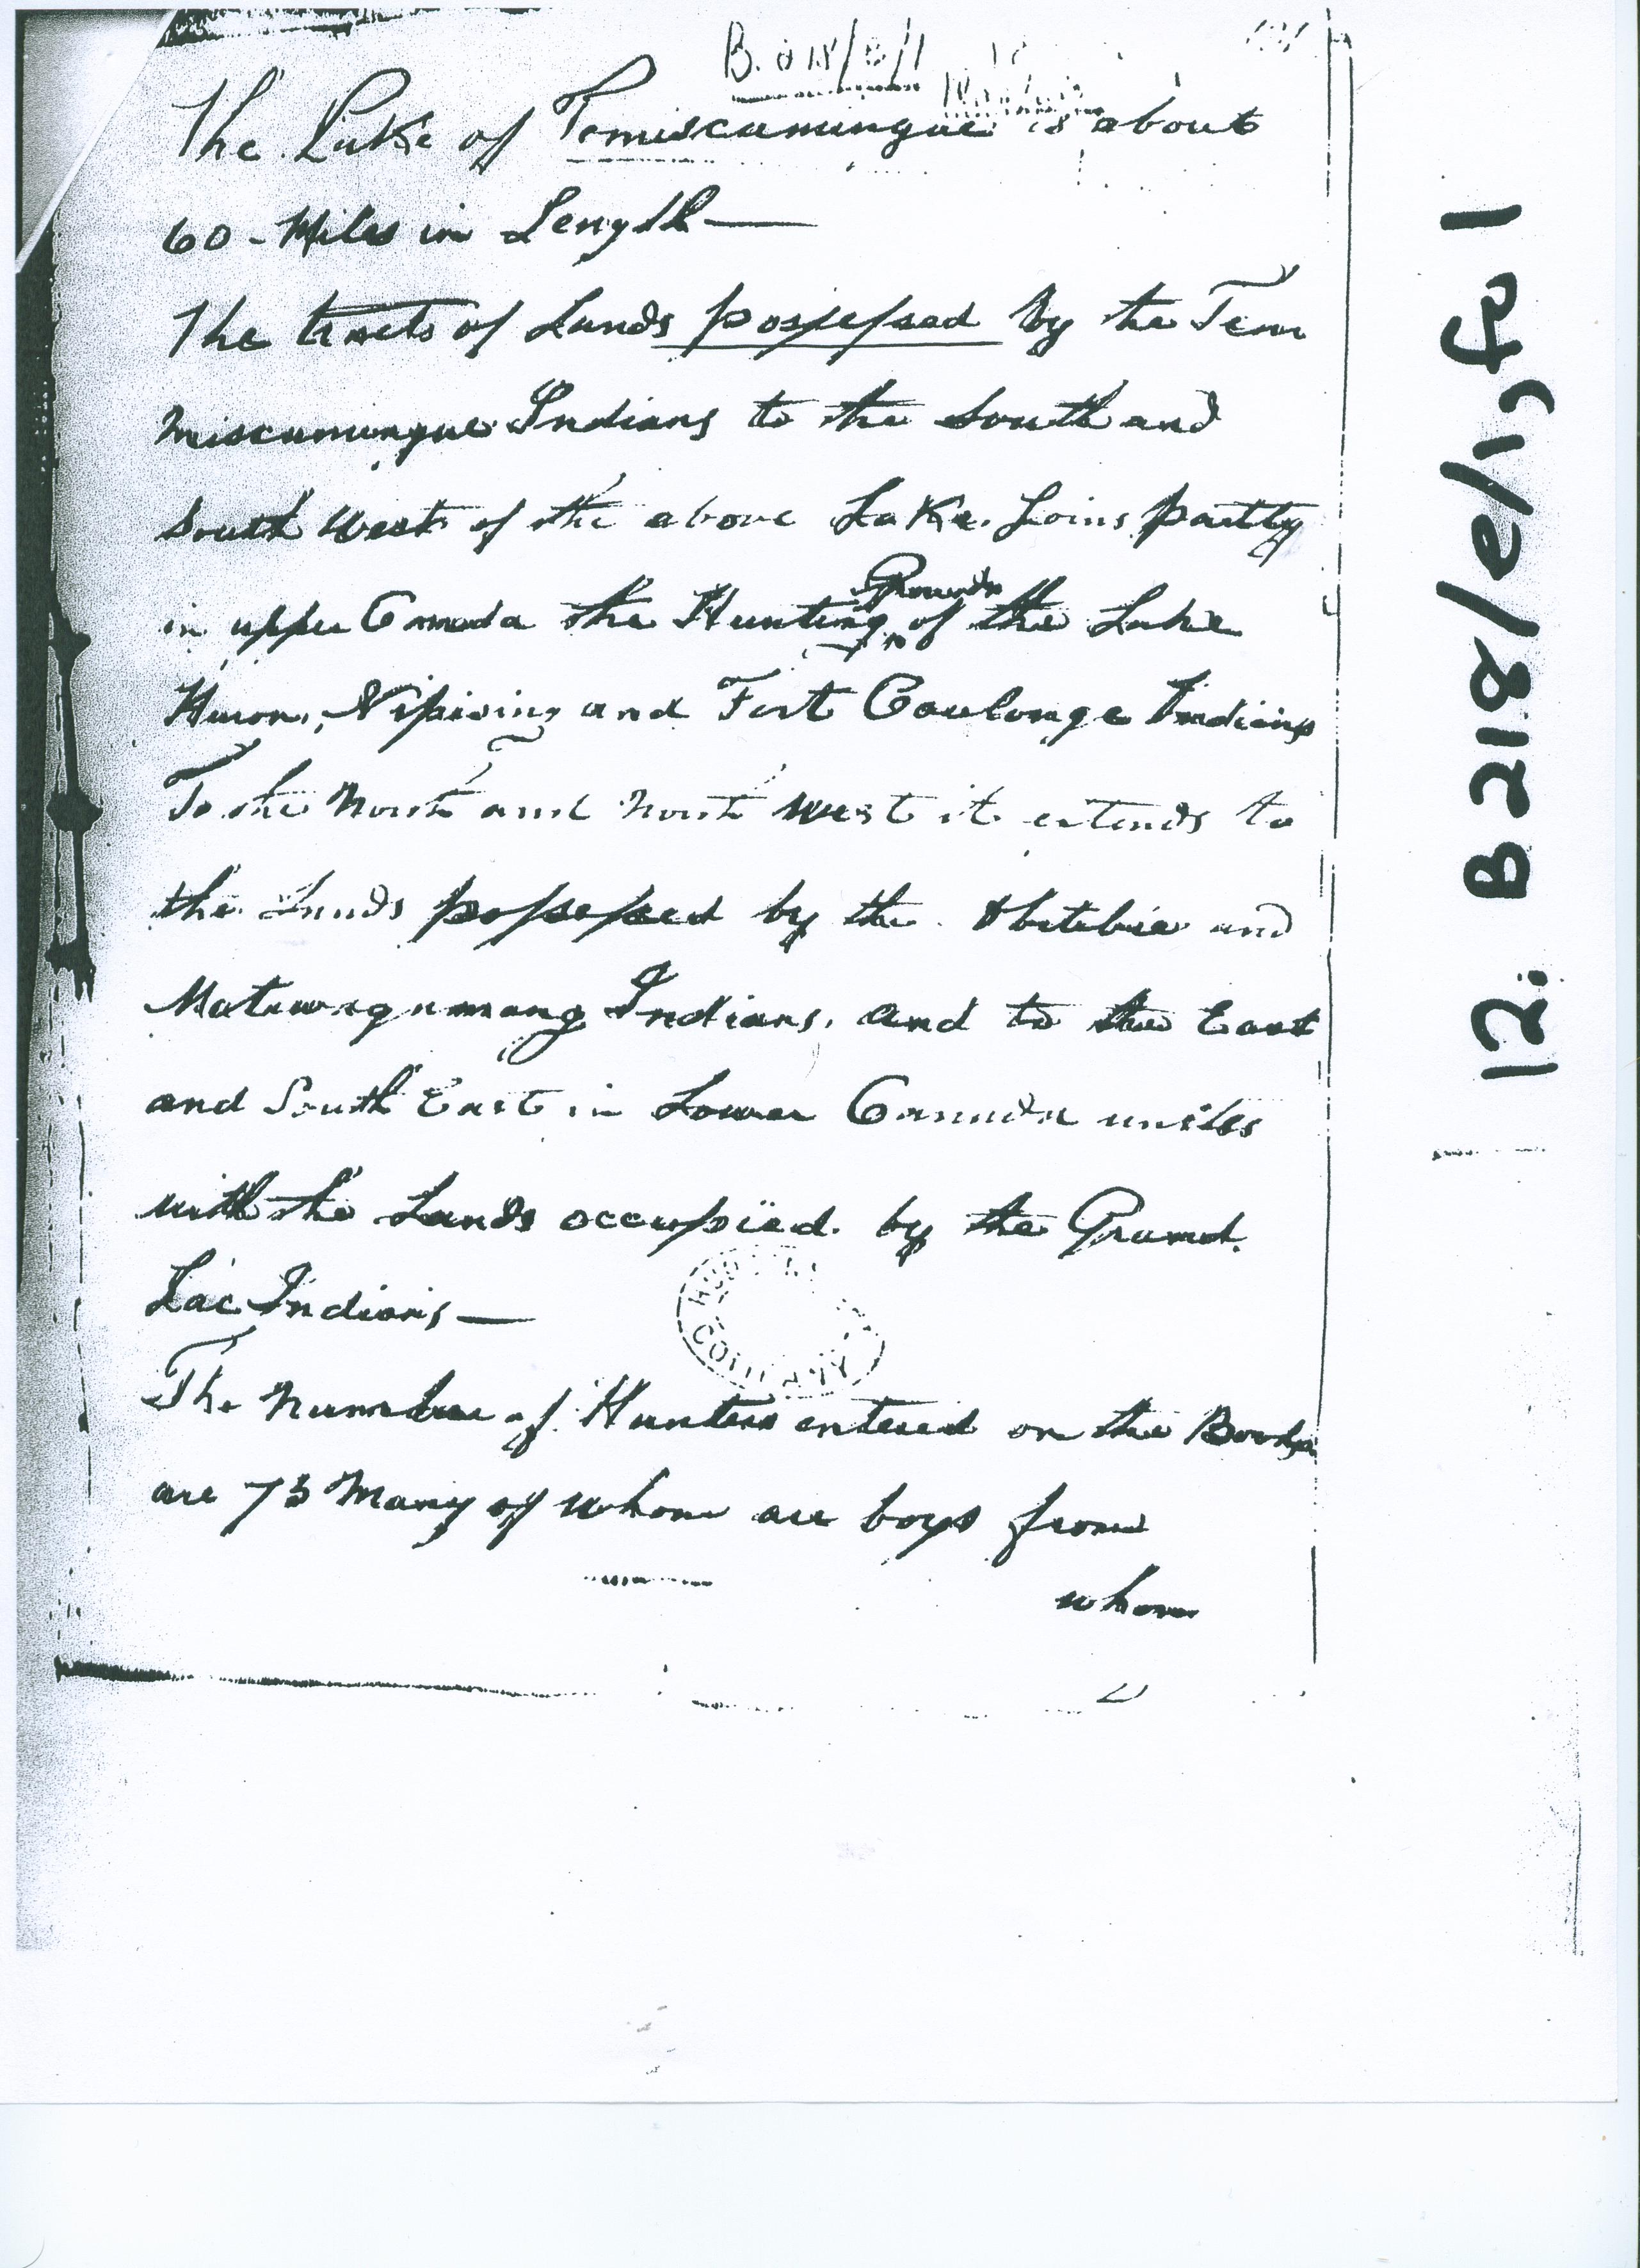 B. 218/e/1
The Lake of Temiscamingue is about
60 - Miles in Length —
The tracts of Lands possessed by the Tem
miscamingue Indians to the South and
South West of the above Lake. Joins partly
in upper Canada the Hunting Grounds of the Lake
Huron, Nipising and Fort Coulonge Indians
To the North and North West it extends to
the Lands possessed by the Abitibie and
Matawagamang Indians, and to the East
and South East in Lower Canada unites
with the Lands occupied by the Grand
Lac Indians —
The Number of Hunters entered on the Books
are 75 Many of whom are boys from
whom
COMPANY
12. B 218/e/1, fo 1